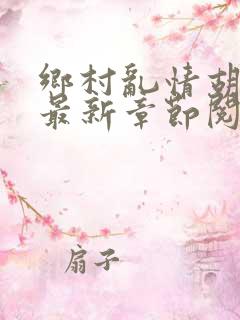 鄉村亂情胡
最新章節閱
扇子